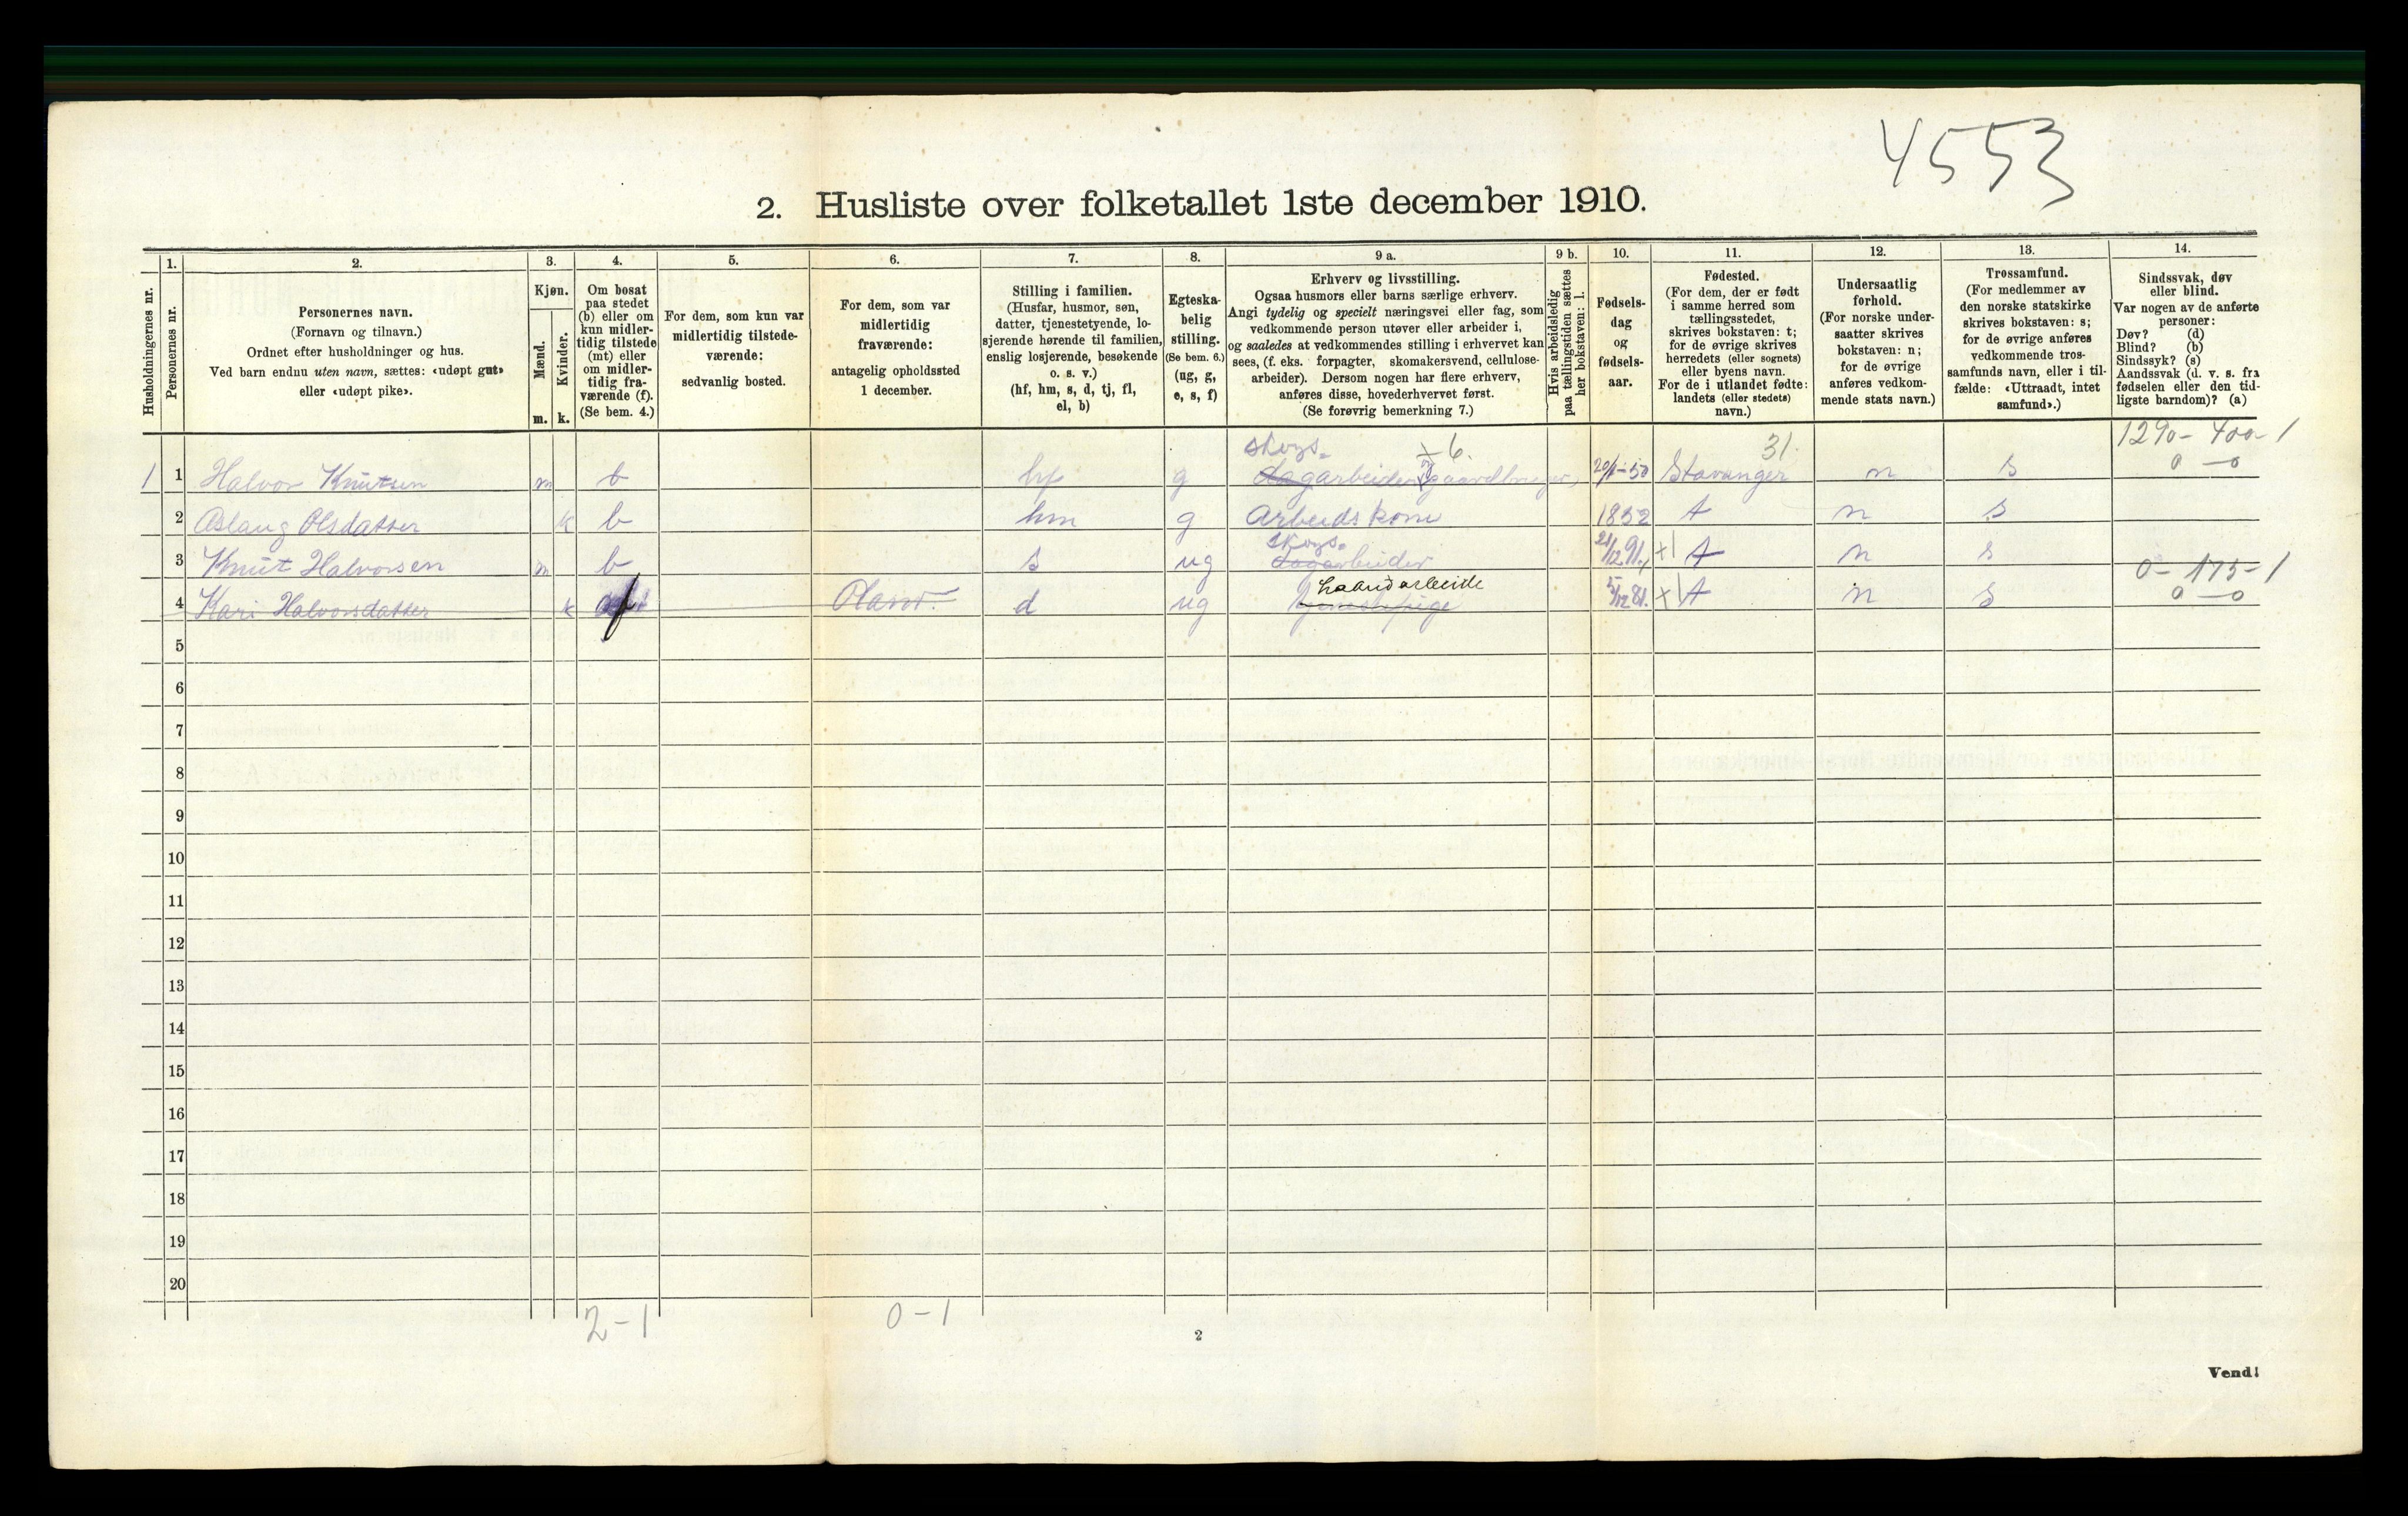 4553
2. Husliste over folketallet 1ste december 1910.
Husholdningernes nr.
1.
Personernes nr.
2.
Personernes navn.
(Fornavn og tilnavn.)
Ordnet efter husholdninger og hus.
Ved barn endnu uten navn, sættes: «udøpt gut»
eller «udøpt pike».
3.
Kjøn.
Mænd.
m.
Kvinder.
k.
4.
Om bosat
paa stedet
(b) eller om
kun midler-
tidig tilstede
(mt) eller
om midler-
tidig fra-
værende (f).
(Se bem. 4.)
5.
For dem, som kun var
midlertidig tilstede-
værende:
sedvanlig bosted.
6.
For dem, som var
midlertidig
fraværende:
antagelig opholdssted
1 december.
7.
Stilling i familien.
(Husfar, husmor, søn,
datter, tjenestetyende, lo-
sjerende hørende til familien,
enslig losjerende, besøkende
o. s. v.)
(hf, hm, s, d, tj, fl,
el, b)
8.
Egteska-
belig
stilling.
(Se bem. 6.)
(ug, g,
e, s, f)
9 a.
Erhverv og livsstilling.
Ogsaa husmors eller barns særlige erhverv.
Angi tydelig og specielt næringsvei eller fag, som
vedkommende person utøver eller arbeider i,
og saaledes at vedkommendes stilling i erhvervet kan
sees, (f. eks. forpagter, skomakersvend, cellulose-
arbeider). Dersom nogen har flere erhverv,
anføres disse, hovederhvervet først.
(Se forøvrig bemerkning 7.)
9 b.
Hvis arbeidsledig
paa tællingstiden sættes
her bokstaven: l.
10.
Fødsels-
dag
og
fødsels-
aar.
11.
Fødested.
(For dem, der er født
i samme herred som
tællingsstedet,
skrives bokstaven: t;
for de øvrige skrives
herredets (eller sognets)
eller byens navn.
For de i utlandet fødte:
landets (eller stedets)
navn.)
12.
Undersaatlig
forhold.
(For norske under-
saatter skrives
bokstaven: n;
for de øvrige
anføres vedkom-
mende stats navn.)
13.
Trossamfund.
(For medlemmer av
den norske statskirke
skrives bokstaven: s;
for de øvrige anføres
vedkommende tros-
samfunds navn, eller i til-
fælde: «Uttraadt, intet
samfund».)
14.
Sindssvak, døv
eller blind.
Var nogen av de anførte
personer:
Døv? (d)
Blind? (b)
Sindssyk? (s)
Aandssvak (d. v. s. fra
fødselen eller den tid-
ligste barndom)? (a)
skogs- 6. 31. 1290- 400-1
1 1 Halvor Knutsen m b hf g Dagarbeider gaardbruger, 20/1-50 Stavanger n s 0-0
2 Aslaug Olsdatter k b hm g Arbeidskone 1852 t n s
skogs-
3 Knut Halvorsen m b s ug Dagarbeider 21/12 91 x1 t n s 0-175-1
haandarbeide
4 Kari Halvorsdatter k f d ug 5/12 81. x1 t n s 0-0
5
6
7
8
9
10
11
12
13
14
15
16
17
18
19
20
2-1 0-1
2
Vend!